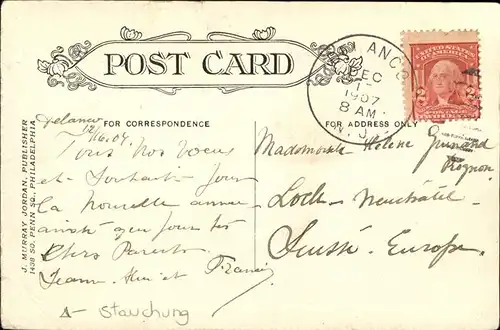 POST CARD
DELANCO
DEC
1907
8 AM
N.J.
UNITED STATES
OF AMERICA
2 2
FOR CORRESPONDENCE
FOR ADDRESS ONLY
J. MURRAY JORDAN, PUBLISHER
1438 SO. PENN SQ., PHILADELPHIA.
Delanco
Tous nos voeux
et souhaits pour
la nouvelle année
ainsi que pour tes
chers Parents
Jeanne et Francis
Mademoiselle Hélène
Locle - Neuchâtel
Suisse - Europe.
Δ - stauchung